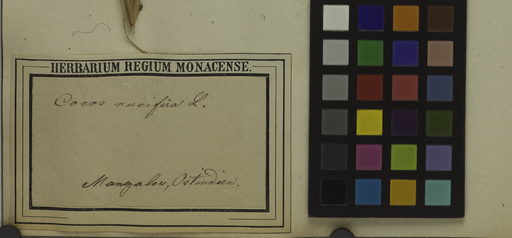 HERBARIUM REGIUM MONACENSE.
Cocos nucifera L.
Mangalor, Ostindien.